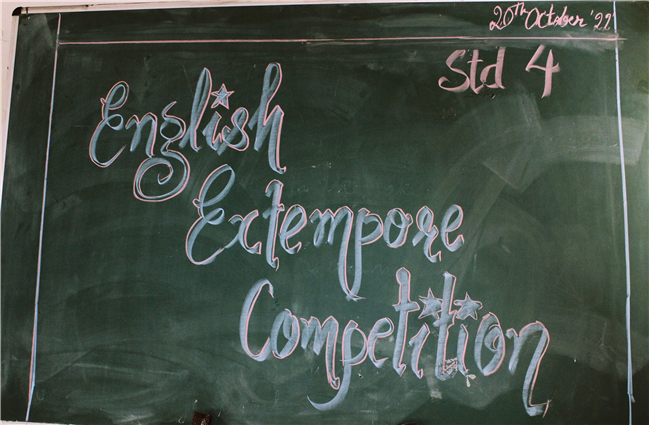 20th October '22
Std 4
English
Extempore
Competition